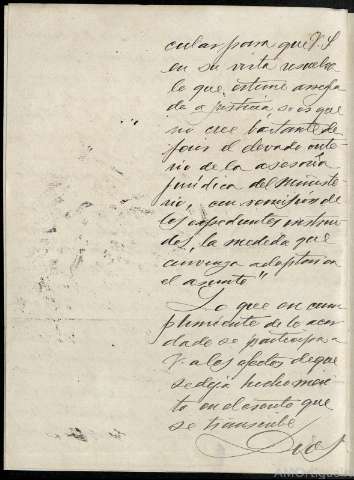 cular para que V.S
en su vista resuelva
lo que estime arregla
do a justicia si es que
no cree bastante de
ferir el elevado crite
rio de la asesoría
jurídica del Ministe
rio, con remisión de
los expedientes instrui
dos, la medida que
convenga adoptar en
el asunto"
Lo que en cum
plimiento de lo acor
dado se participa a
V. a los efectos de que
se deja hecho men
to en el escrito que
se transcribe
Dios
AMOrtigueira